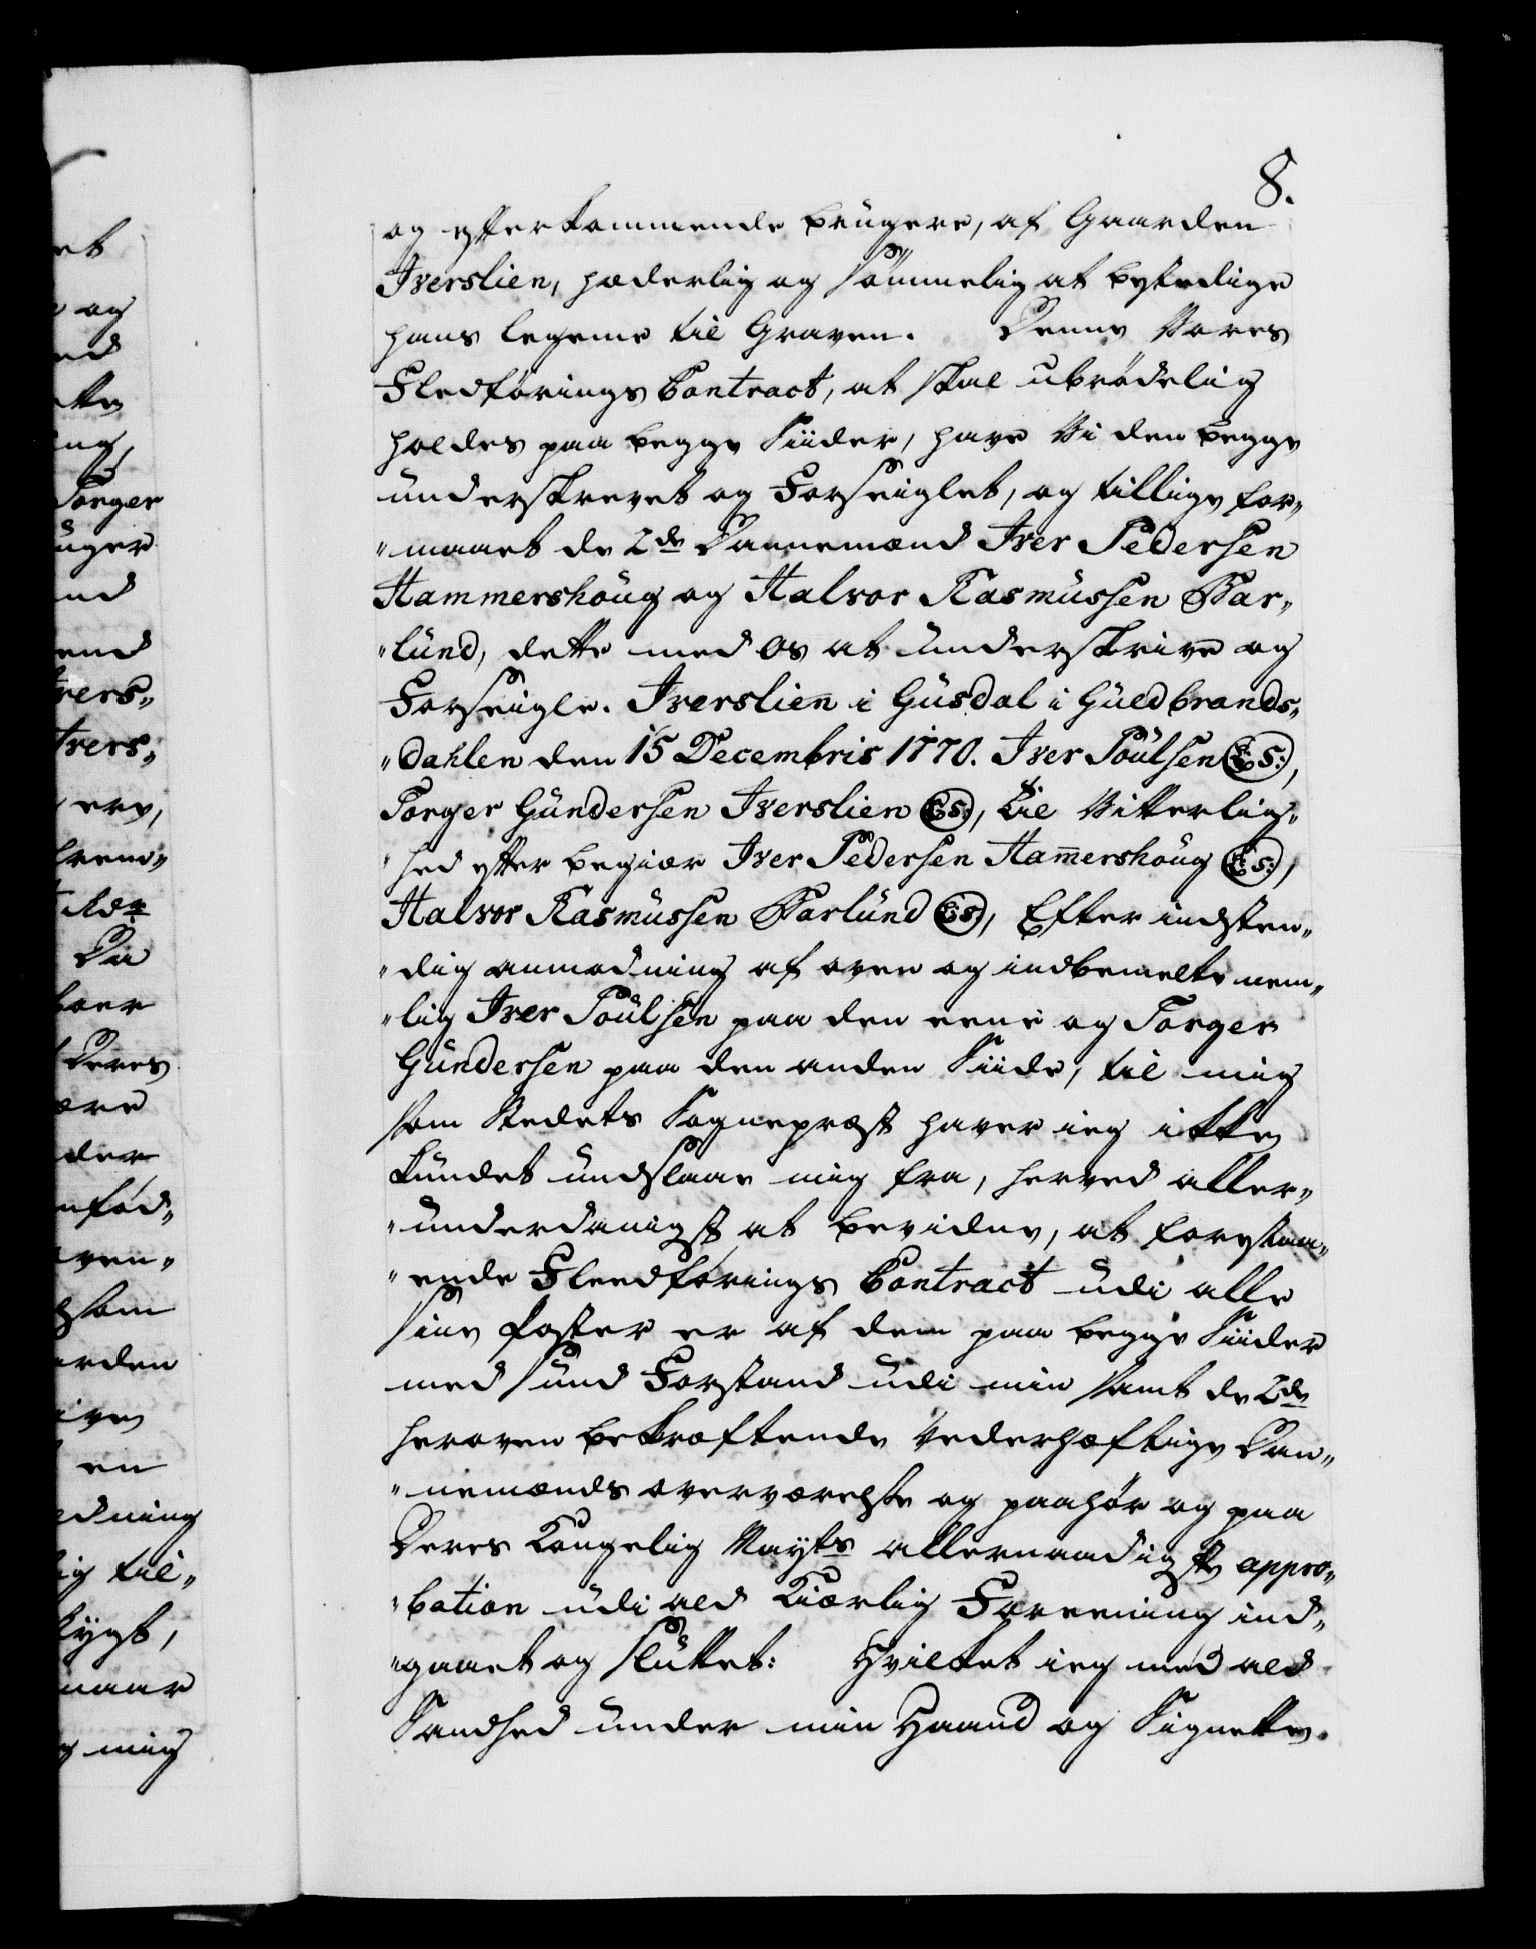 8.
og efterkommende brugere, af Gaarden
Iverslien, hæderlig og sømmelig at bestædige
hans legeme til Graven. Denne Vores
Fledførings Contract, at skal ubrødelig
holdes paa begge Siider, have Vi den begge
underskrevet og Forseiglet, og tillige for„
„maaet de 2de Dannemænd Iver Pedersen
Hammershoug og Halvor Rasmussen Bar„
„lund, dette med os at underskrive og
Forseigle. Iverslien i Gusdal i Guldbrands„
„dahlen den 15 Decembris 1770. Iver Poulsen (L: S:),
Torger Gundersen Iverslien (L:S:), Til Vitterlig„
„hed efter begiær Iver Pedersen Ham̅ershoug (L:S:),
Halvor Rasmussen Barlund (L:S:), Efter indsten„
„dig anmodning af oven og indbemelte nem„
„lig Iver Poulsen paa den eene og Torger
Gundersen paa den anden Siide, til mig
som Stedets Sognepræst haver ieg ikke
kundet undslaae mig fra, herved aller„
„underdanigst at bevidne, at forestaa„
„ende Fleedførings Contract udi alle
sine Poster er af dem paa begge Siider
med sund Forstand udi min samt de 2de
heroven bekræftende Vederhæftige Dan„
„nemænds overværelse og paahør og paa
Deres Kongelig Mayts allernaadigste appro„
„bation udi ald Kiærlig Foreening ind„
„gaaet og sluttet: Hvilket ieg med ald
Sandhed under min Haand og Signette